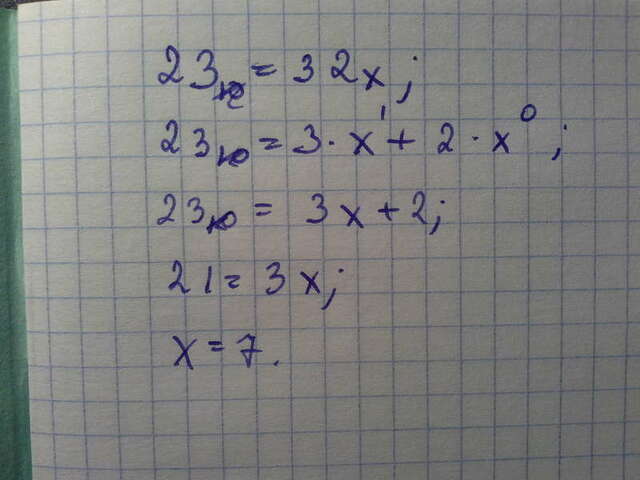 23₁₀ = 32ₓ;
23₁₀ = 3 · x¹ + 2 · x⁰;
23₁₀ = 3x + 2;
21 = 3x;
x = 7.